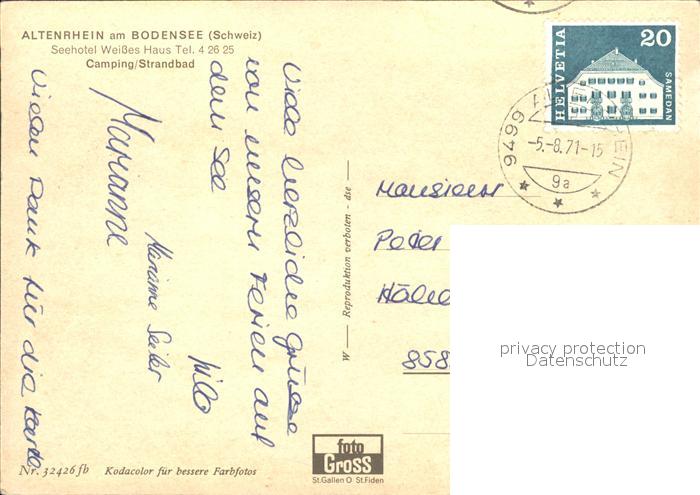 ALTENRHEIN am BODENSEE (Schweiz)
Seehotel Weißes Haus Tel. 4 26 25
Camping/Strandbad
Viele herzliche Grüsse
von unseren Ferien auf
dem See
Marianne
Marianne Seiler
Vielen Dank für die Karte
M — Reproduktion verboten - die —
HELVETIA
20
SAMEDAN
9499 ALTENRHEIN
-5.-8.71-15
9a
Monsieur
Peter
858
privacy protection
Datenschutz
foto
GROSS
St.Gallen O St.Fiden
Nr. 32426fb Kodacolor für bessere Farbfotos